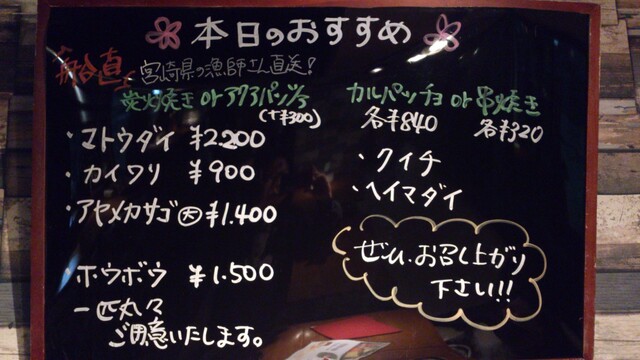 本日のおすすめ
船直!! 宮崎県の漁師さん直送!
炭火焼き or アクアパッツァ
(+¥300)
・マトウダイ ¥2.200
・カイワリ ¥900
・アヤメカサゴ大 ¥1.400
・ホウボウ ¥1.500
一匹丸々
ご用意いたします。
カルパッチョ or 串焼き
各¥840 各¥320
・クイチ
・ヘイマダイ
ぜひ、お召し上がり
下さい!!